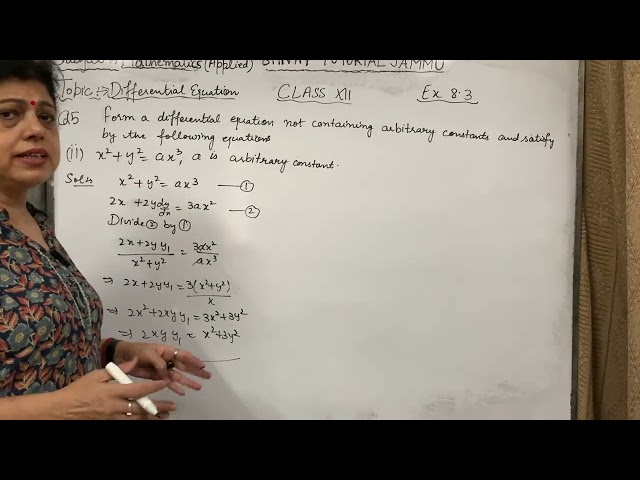 Mathematics (Applied) TUTORIAL JAMMU
Topic :→ Differential Equation CLASS XII Ex 8.3
Q5 Form a differential equation not containing arbitrary constants and satisfy
by the following equations
(ii) x² + y² = ax³, a is arbitrary constant.
Soln x² + y² = ax³ — ①
2x + 2y dy/dx = 3ax² — ②
Divide ② by ①
(2x + 2yy₁)/(x² + y²) = 3ax²/ax³
⇒ 2x + 2yy₁ = 3(x² + y²)/x
⇒ 2x² + 2xyy₁ = 3x² + 3y²
⇒ 2xyy₁ = x² + 3y²